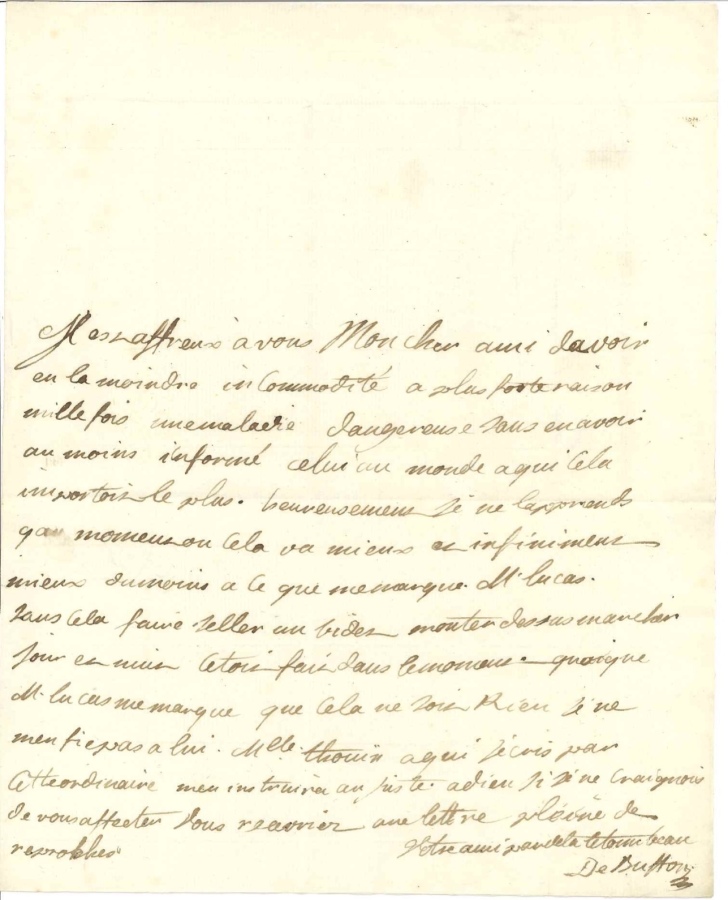 Il est affreux a vous Mon cher ami davoir
eu la moindre incommodité a plus forte raison
mille fois une maladie dangereuse sans en avoir
au moins informé celui au monde a qui Cela
importoit le plus. heureusement je ne lapprends
qau moment ou Cela va mieux et infiniment
mieux du moins a Ce que me marque Mr. lucas.
sans Cela faire seller un bidet monter dessus marcher
jour et nuit Cetoit fait dans le moment. quoique
Mr. lucas me marque que Cela ne soit Rien je ne
men fie pas a lui. Mlle. thouin a qui jécris par
Cet ordinaire men instruira au juste. adieu si je ne Craignois
de vous affecter vous auriez une lettre pleine de
reproches
Votre ami par dela le tombeau
De Buffon